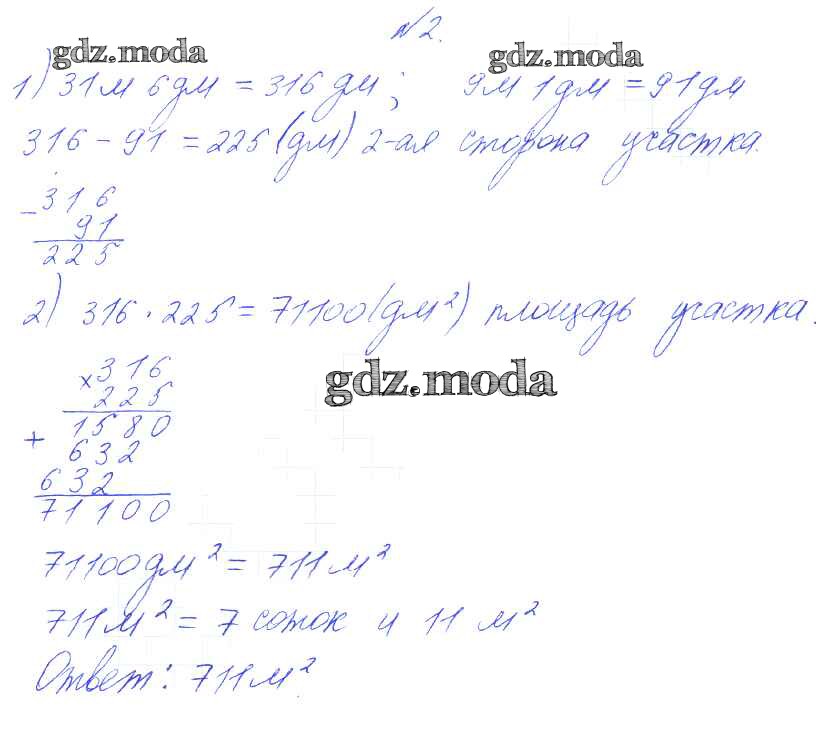 №2.
gdz.moda gdz.moda
1) 31м 6дм = 316 дм; 9м 1дм = 91дм
316 - 91 = 225 (дм) 2-ая сторона участка.
- 316
91
225
2) 316 · 225 = 71100 (дм²) площадь участка.
gdz.moda
× 316
225
+ 1580
632
632
71100
71100дм² = 711м²
711м² = 7 соток и 11 м²
Ответ: 711м².